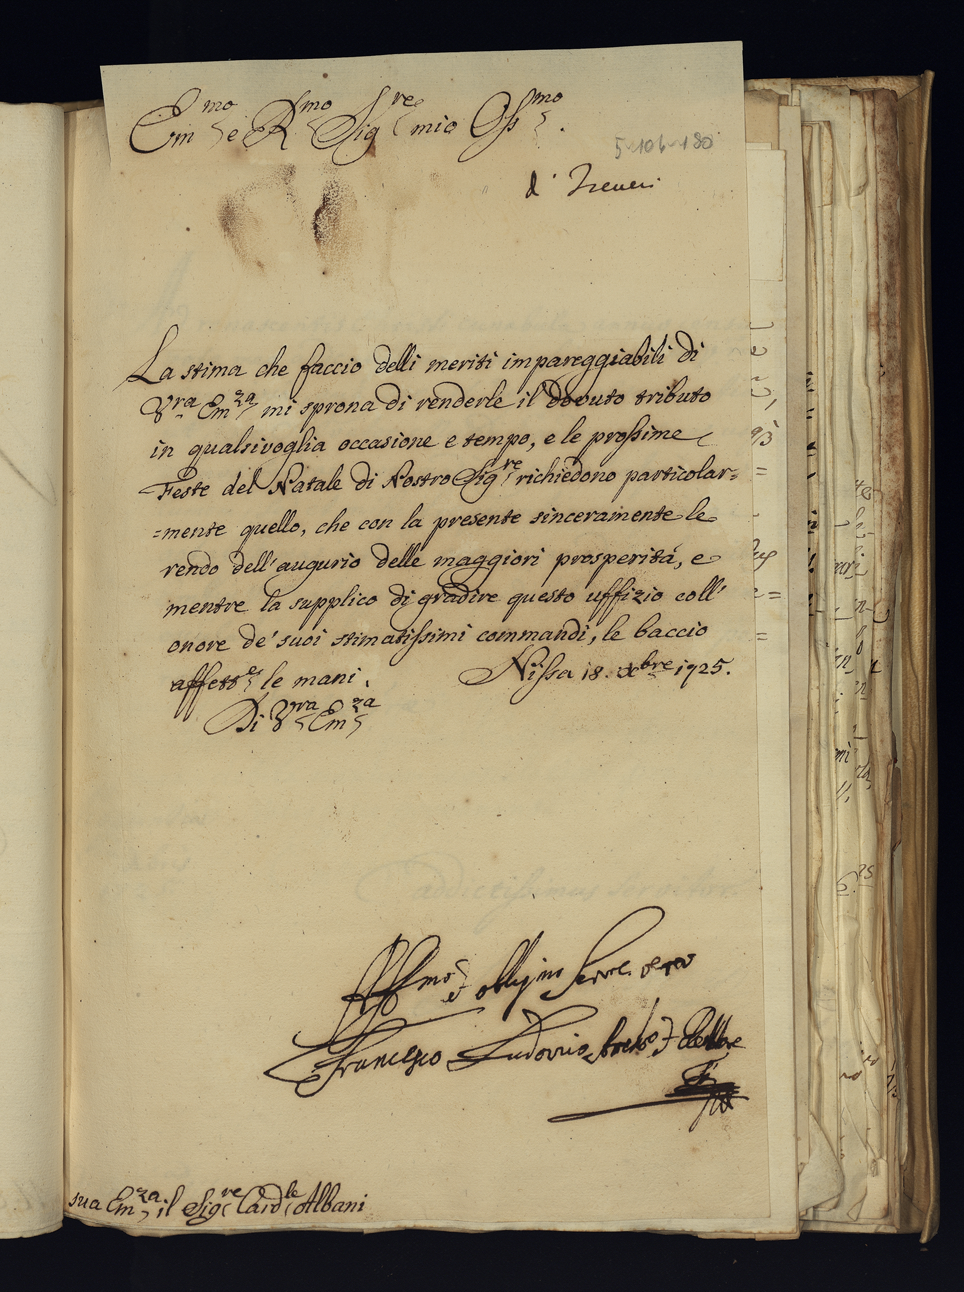 Em.mo e R.mo Sig.re mio Oss.mo
5-106-180
d' Treveri
La stima che faccio delli meriti impareggiabili di
V.ra Em.za mi sprona di renderle il dovuto tributo
in qualsivoglia occasione e tempo, e le prossime
Feste del Natale di Nostro Sig.re richiedono particolar=
=mente quello, che con la presente sinceramente le
rendo dell' augurio delle maggiori prosperità, e
mentre la supplico di gradire questo uffizio coll'
onore de' suoi stimatissimi commandi, le baccio
affett.e le mani. Nissa 18. Xbre 1725.
Di V.ra Em.za
Aff.mo et obblig.mo Serre vero
Francesco Ludovico et Elettore
sua Em.za il Sig.re Card.le Albani